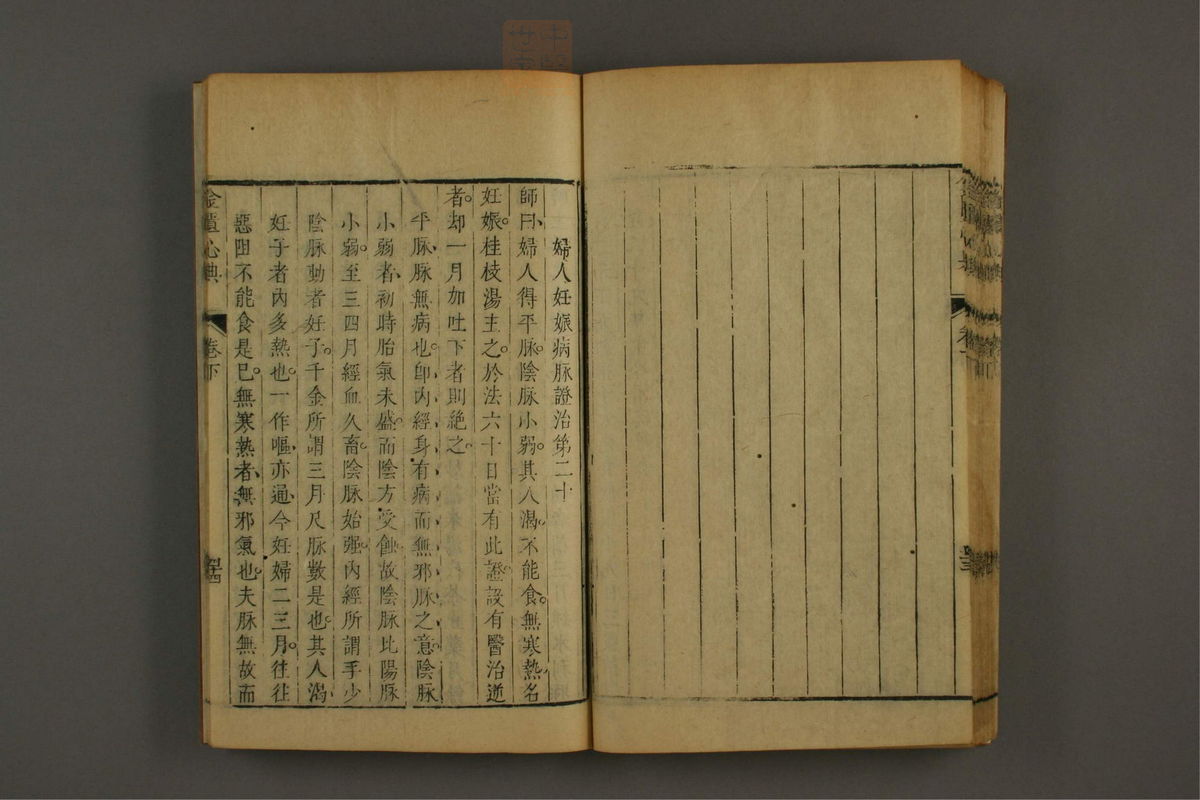 婦人妊娠病脉證治第二十
師曰婦人得平脉。陰脉小弱。其人渴。不能食。無寒熱。名
妊娠。桂枝湯主之。於法六十日當有此證。設有醫治逆
者。却一月加吐下者則絶之。
平脉、脉無病也。卽内經身有病而無邪脉之意。陰脉
小弱者、初時胎氣未盛。而陰方受蝕。故陰脉比陽脉
小弱。至三四月經血久畜。陰脉始强。内經所謂手少
陰脉動者妊子。千金所謂三月尺脉數是也。其人渴、
妊子者内多熱也。一作嘔、亦通、今妊婦二三月。往往
惡阻不能食是已。無寒熱者、無邪氣也。夫脉無故而
金匱心典
卷下
四十四